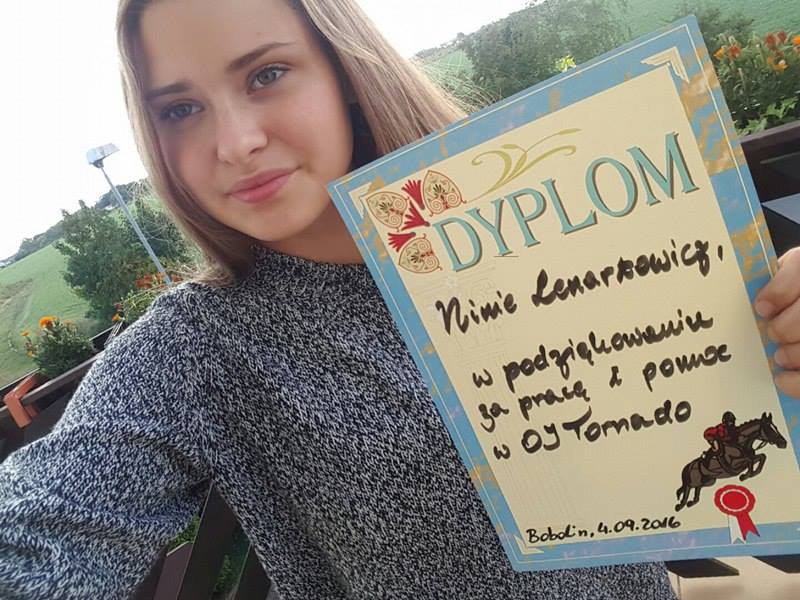 DYPLOM
Ninie Lenarsowicz,
w podziękowaniu
za pracę i pomoc
w OJ Tornado
Bobolin, 4.09.2016